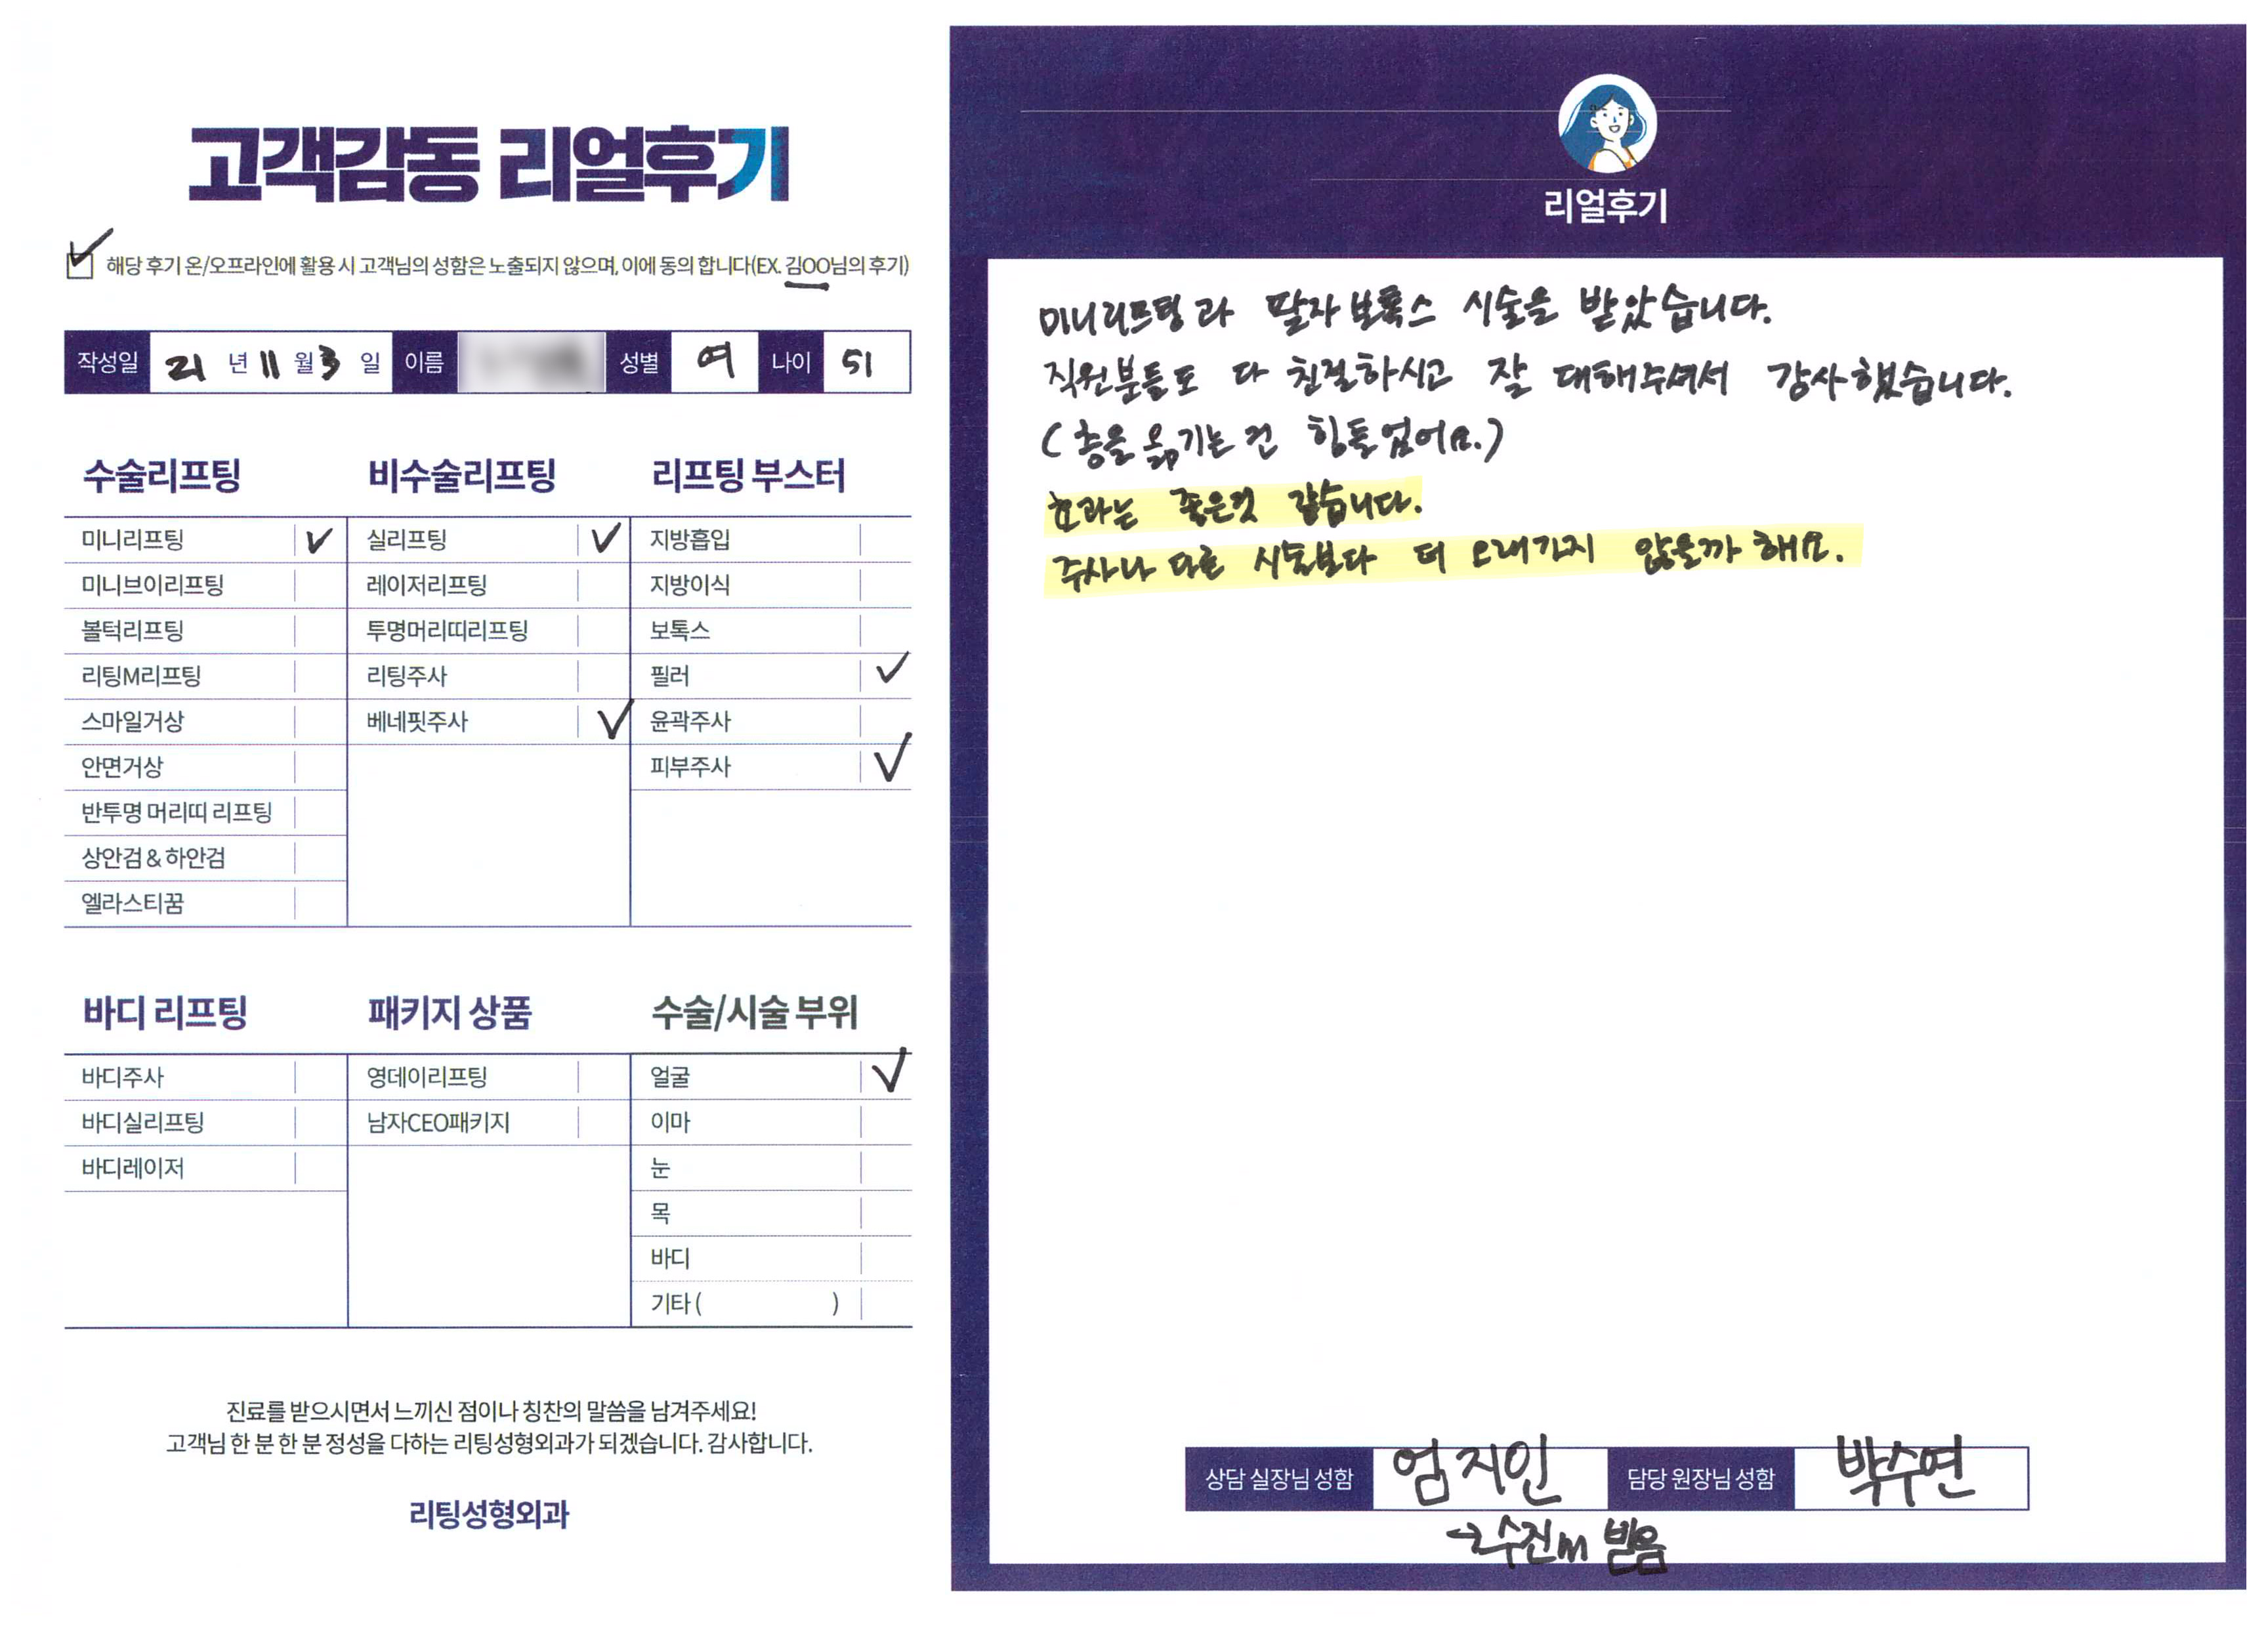 고객감동 리얼후기
해당 후기 온/오프라인에 활용 시 고객님의 성함은 노출되지 않으며, 이에 동의 합니다(EX. 김OO님의 후기)
작성일 21 년 11 월 3 일 이름 성별 여 나이 51
수술리프팅
미니리프팅 ✓
미니브이리프팅
볼턱리프팅
리팅M리프팅
스마일거상
안면거상
반투명 머리띠 리프팅
상안검 & 하안검
엘라스티꿈
비수술리프팅
실리프팅 ✓
레이저리프팅
투명머리띠리프팅
리팅주사
베네핏주사 ✓
리프팅 부스터
지방흡입
지방이식
보톡스
필러 ✓
윤곽주사
피부주사 ✓
바디 리프팅
바디주사
바디실리프팅
바디레이저
패키지 상품
영데이리프팅
남자CEO패키지
수술/시술 부위
얼굴 ✓
이마
눈
목
바디
기타 ( )
진료를 받으시면서 느끼신 점이나 칭찬의 말씀을 남겨주세요!
고객님 한 분 한 분 정성을 다하는 리팅성형외과가 되겠습니다. 감사합니다.
리팅성형외과
리얼후기
미니리프팅과 팔자 보톡스 시술을 받았습니다.
직원분들도 다 친절하시고 잘 대해주셔서 감사했습니다.
(층을 옮기는 건 힘들었어요.)
효과는 좋은것 같습니다.
주사나 다른 시술보다 더 오래가지 않을까 해요.
상담 실장님 성함 엄지인 담당 원장님 성함 박수연
→수진m 받음